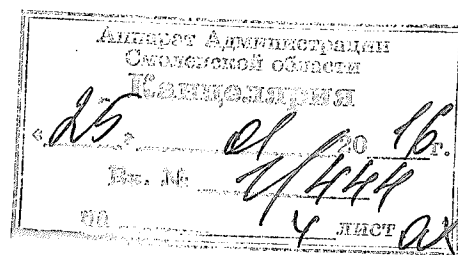 Аппарат Администрации
Смоленской области
Канцелярия
«25» 01 2016 г.
Вх. № 1/444
на 4 листах